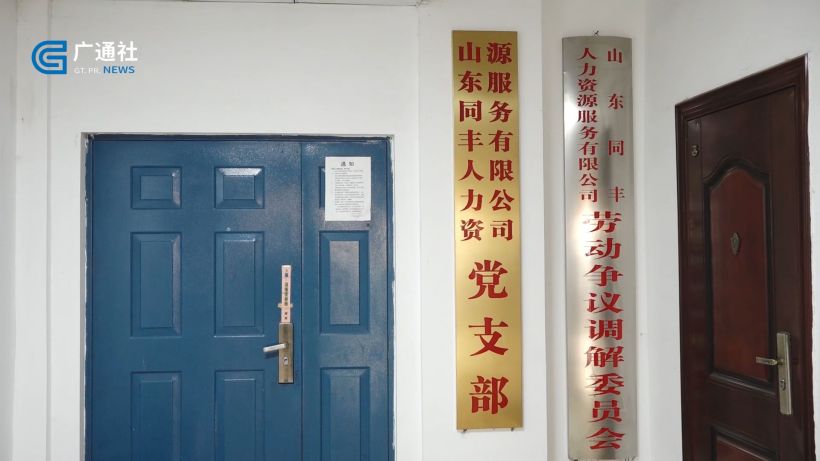 广通社
GT. PR. NEWS
通知
山东同丰人力资
源服务有限公司
党支部
山东同丰
人力资源服务有限公司
劳动争议调解委员会